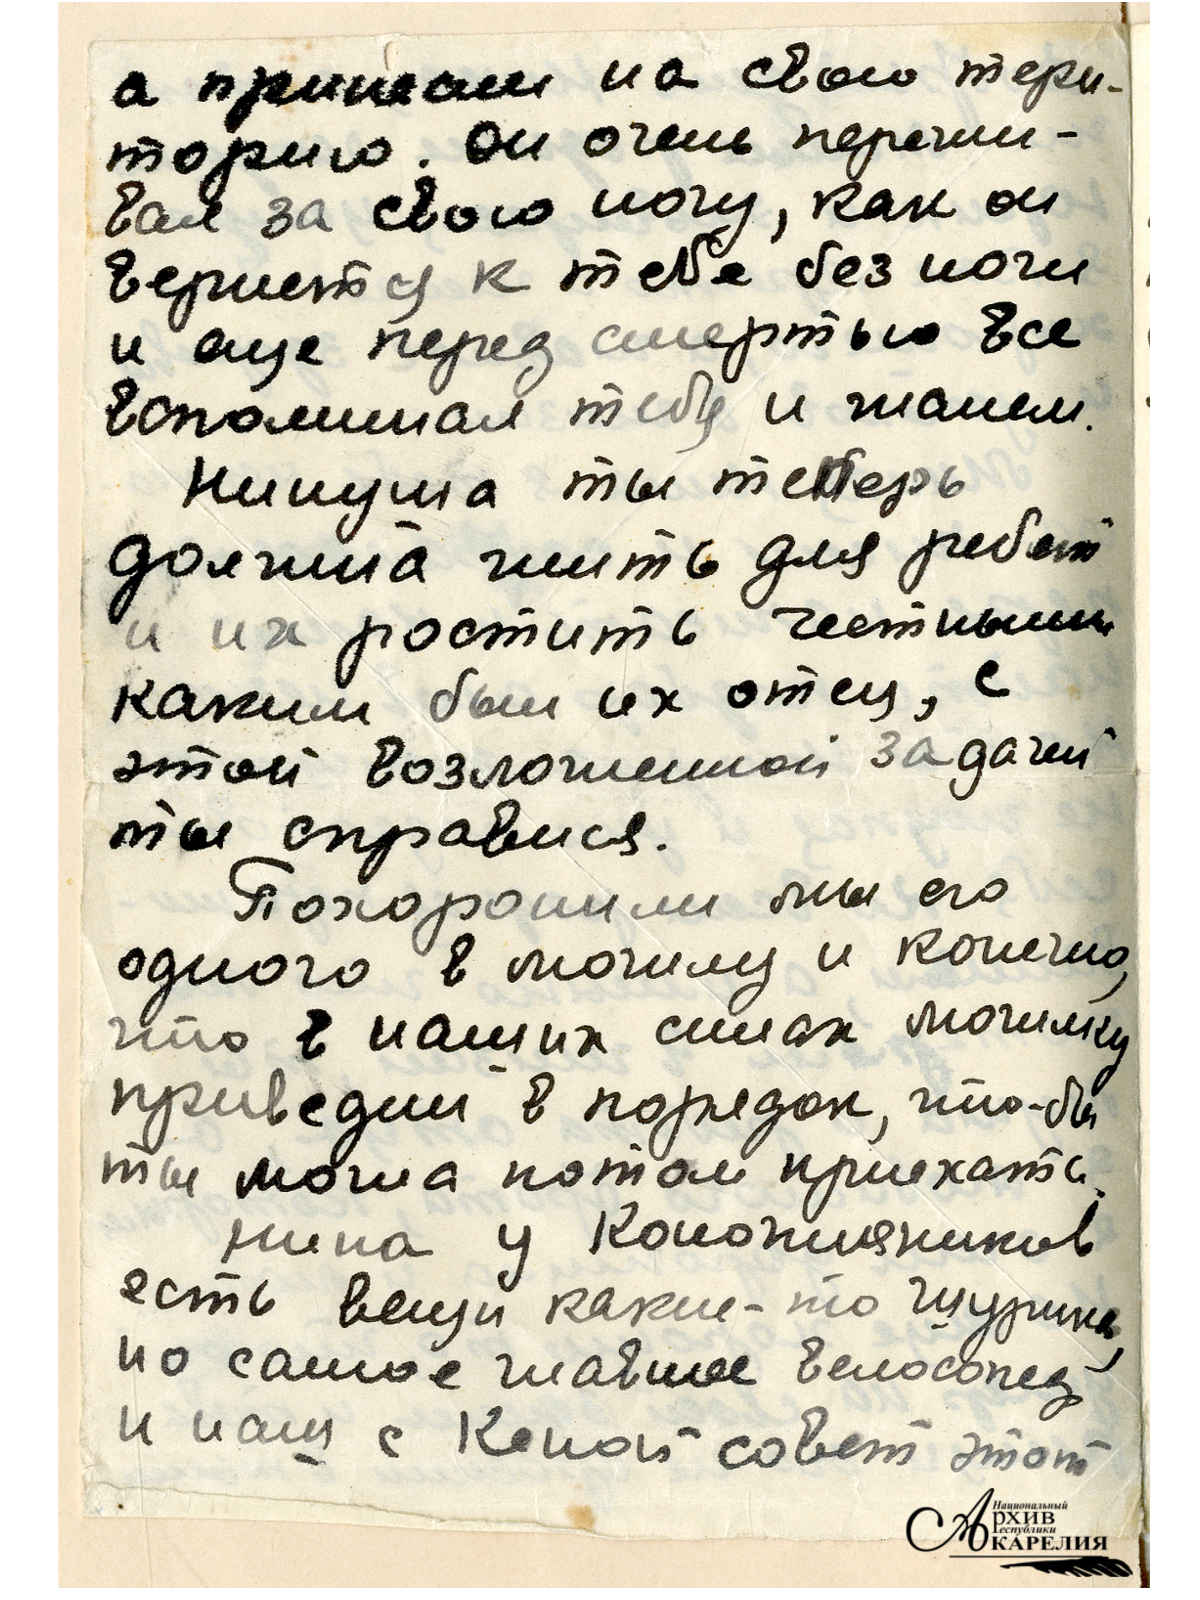 а принесли на свою тери-
торию. Он очень пережи-
вал за свою ногу, как он
вернется к тебе без ноги
и еще перед смертью все
вспоминал тебя и жалел.
Нинуша ты теперь
должна жить для ребят
и их ростить честными
каким был их отец, с
этой возложенной задачей
ты справися.
Похоронили мы его
одного в могилу и конечно,
что в наших силах могилку
приведем в порядок, что-бы
ты могла потом приехать.
Нина у Коножняников
есть вещи какие-то Шурика,
но самое главное велосопед
и наш с Кеной совет этот
Национальный
Архив
Республики
Карелия